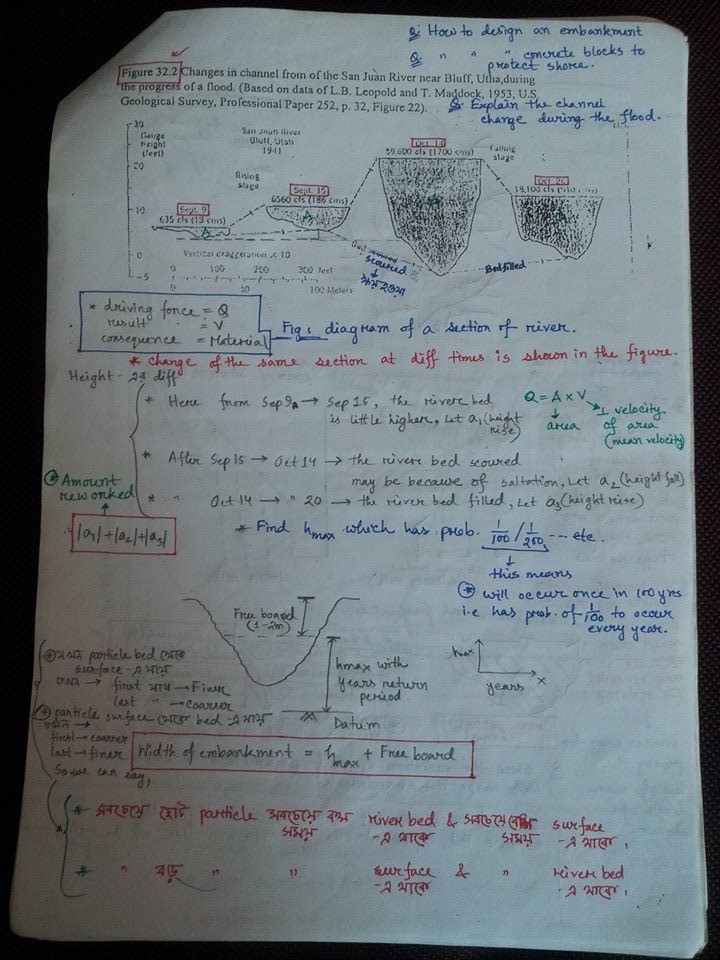 Q: How to design an embankment
Q: " " " concrete blocks to
protect shore.
Figure 32.2 Changes in channel from of the San Juan River near Bluff, Utha,during
the progress of a flood. (Based on data of L.B. Leopold and T. Maddock, 1953, U.S.
Geological Survey, Professional Paper 252, p. 32, Figure 22).
Q: Explain the channel
change during the flood.
30
Gauge
height
(feet)
San Juan River
Bluff, Utah
1941
Oct. 14
59,600 cfs (1700 cms)
Falling
stage
20
Rising
stage
Sept. 15
6560 cfs (186 cms)
Oct. 20
18,100 cfs (510 cms)
10
Sept. 9
635 cfs (13 cms)
A
A
A
0
Vertical exaggeration × 10
Bed scoured
scoured
ক্ষয় হওয়া
Bed filled
-5
0 100 200 300 feet
0 50 100 Meters
* driving force = Q
result = V
consequence = Material
Fig: diagram of a section of river.
* change of the same section at diff times is shown in the figure.
Height - এর diff
* Here from Sep 9 → Sep 15, the rivere bed
is little higher, Let a1 (height
rise)
Q = A × V
area
velocity
of area
(mean velocity)
* After Sep 15 → Oct 14 → the rivere bed scoured
may be because of saltation, Let a2 (height fall)
* " Oct 14 → " 20 → the river bed filled, Let a3 (height rise)
* Amount
reworked
|a1|+|a2|+|a3|
* Find hmax which has prob. 1/100 / 1/200 --- etc.
this means
* will occur once in 100 yrs
i.e has prob. of 1/100 to occur
every year.
Free board
(1-2m)
hmax with
years return
period
Datum
hmax
years
x
* যখন particle bed থেকে
surface -এ যায়
তখন → first যায় → Finer
last " → coarser
* particle surface থেকে bed -এ যায়
তখন →
first → coarser
last → finer
So we can say,
Width of embankment = hmax + Free board
* সবচেয়ে ছোট particle সবচেয়ে কম river bed & সবচেয়ে বেশি surface
সময় -এ থাকে সময় -এ থাকে।
* " বড় " " surface & " rivere bed
-এ থাকে -এ থাকে।